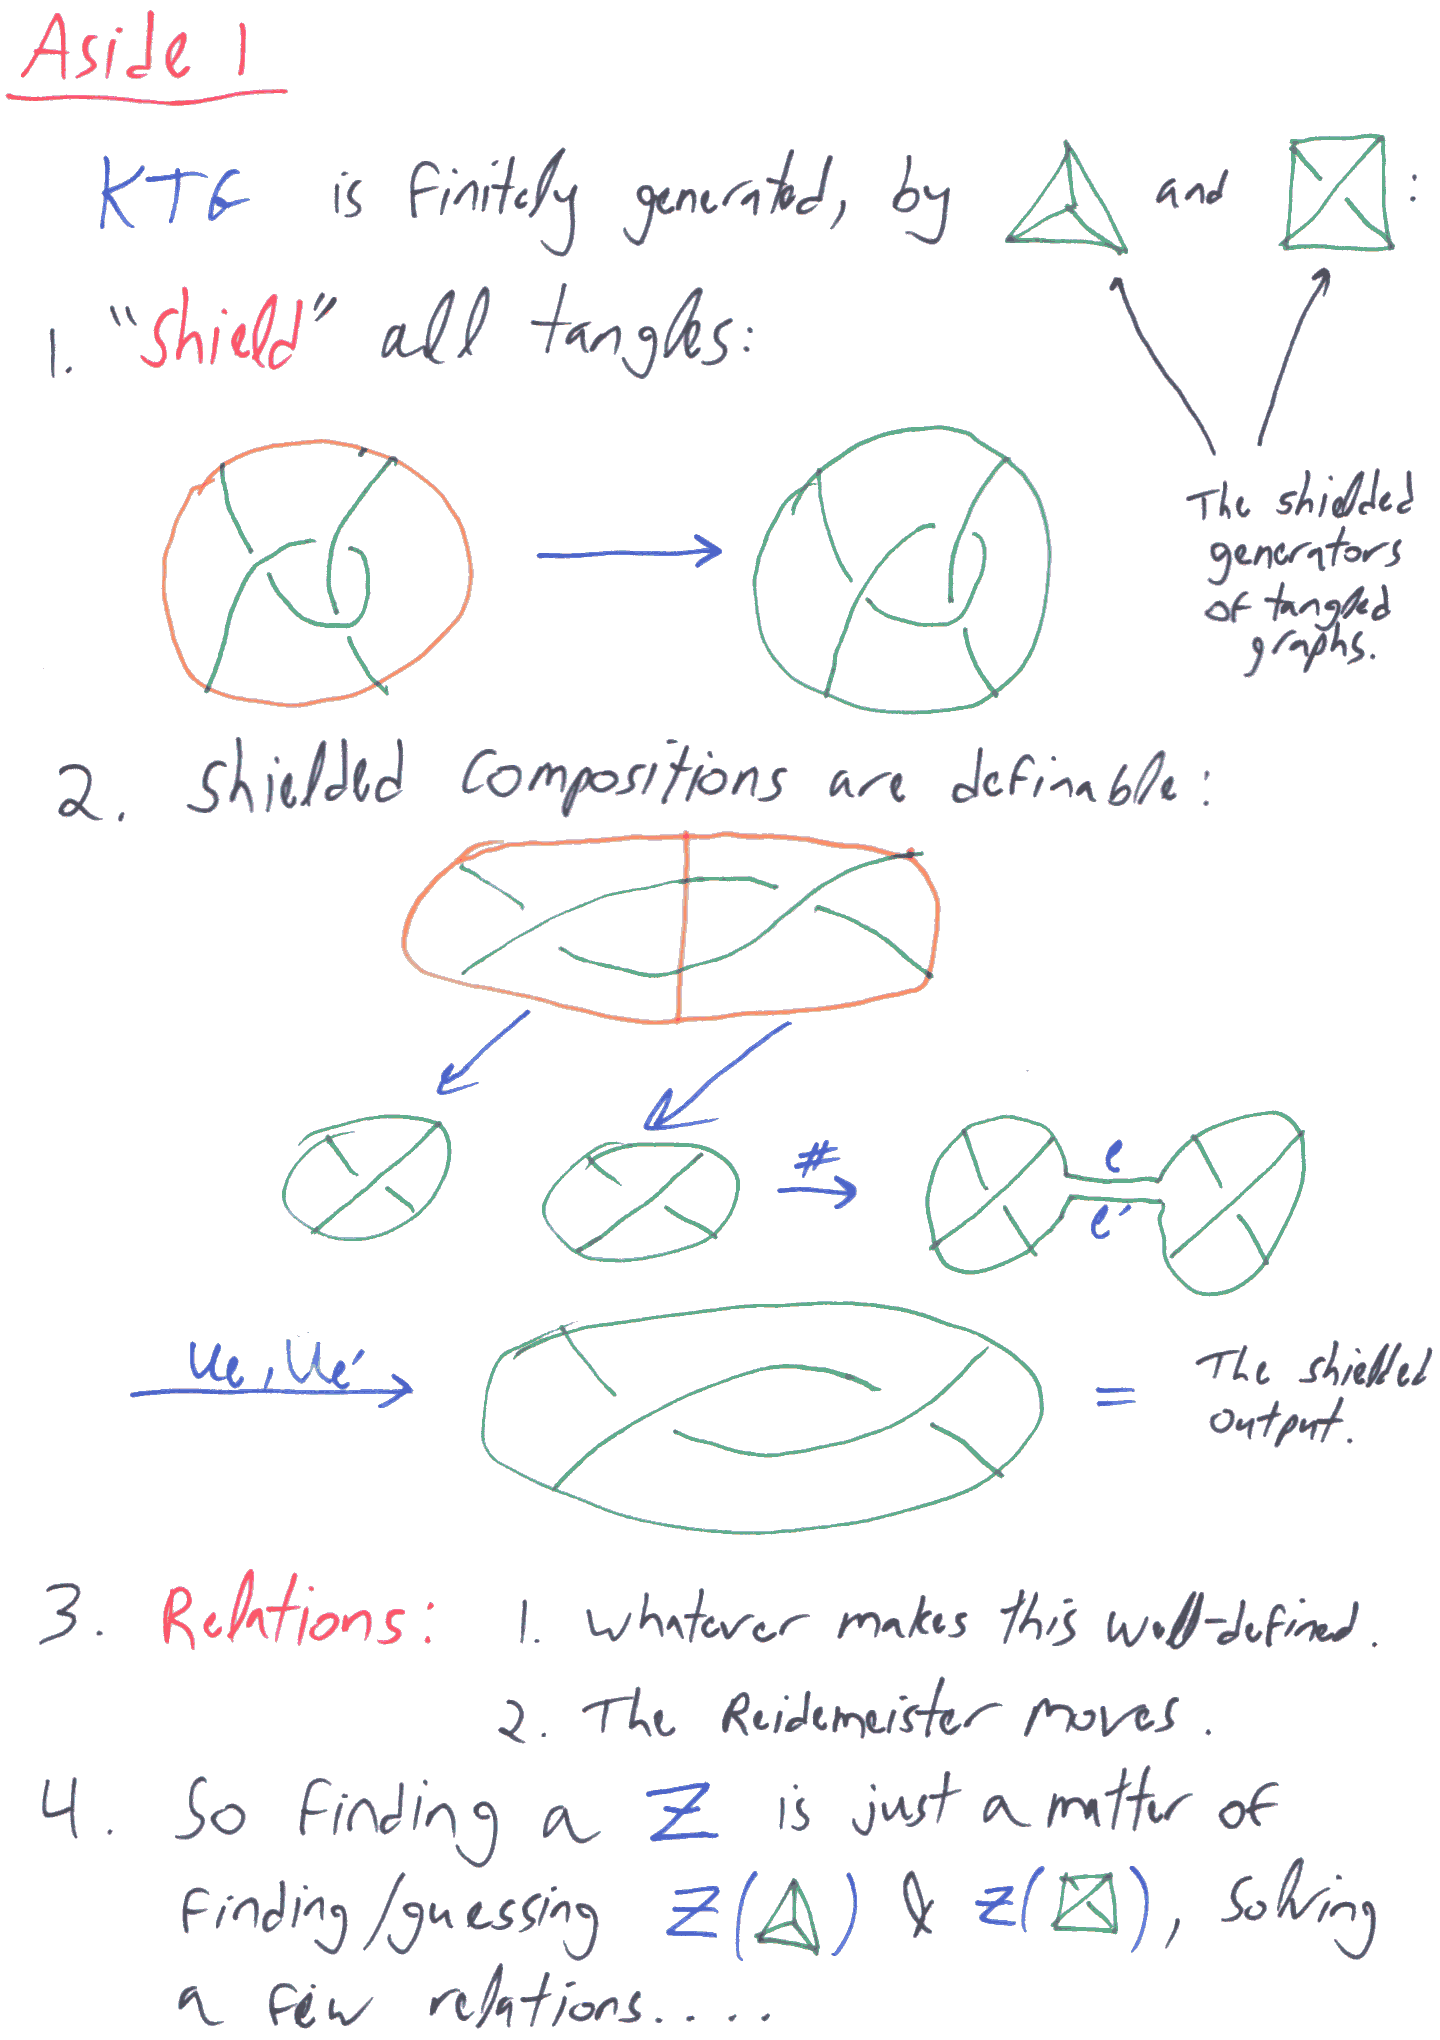 Aside 1
KTG is finitely generated, by and :
1. "Shield" all tangles:
The shielded
generators
of tangled
graphs.
2. Shielded compositions are definable:
#
e
e'
Ue, Ue'
= The shielded
output.
3. Relations: 1. Whatever makes this well-defined.
2. The Reidemeister moves.
4. So finding a Z is just a matter of
finding/guessing Z( ) & Z( ), solving
a few relations.....